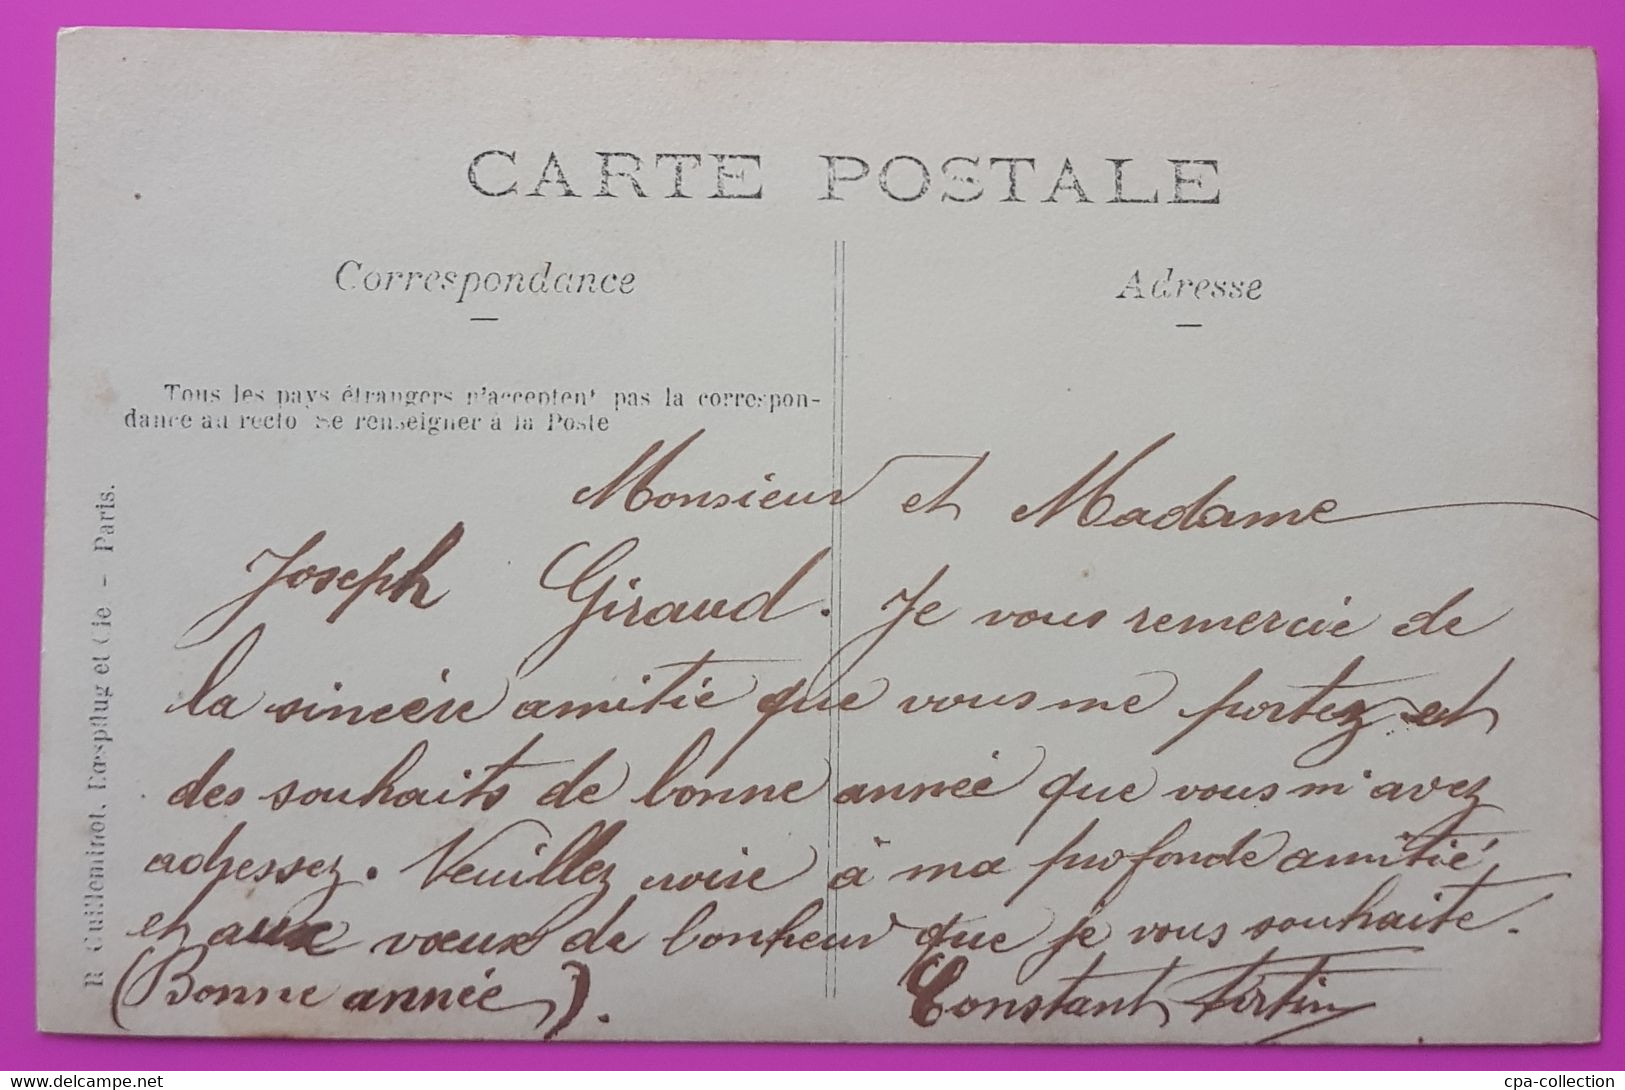 CARTE POSTALE
Correspondance
Adresse
Tous les pays étrangers n'acceptent pas la correspon-
dance au recto Se renseigner à la Poste
R. Guilleminot, Bœspflug et Cie - Paris.
Monsieur et Madame
Joseph Giraud. Je vous remercie de
la sincère amitié que vous me portez et
des souhaits de bonne année que vous m'avez
adressez. Veuillez croire à ma profonde amitié
et aux vœux de bonheur que je vous souhaite.
(Bonne année).
Constant
https://www.delcampe.net
cpa-collection